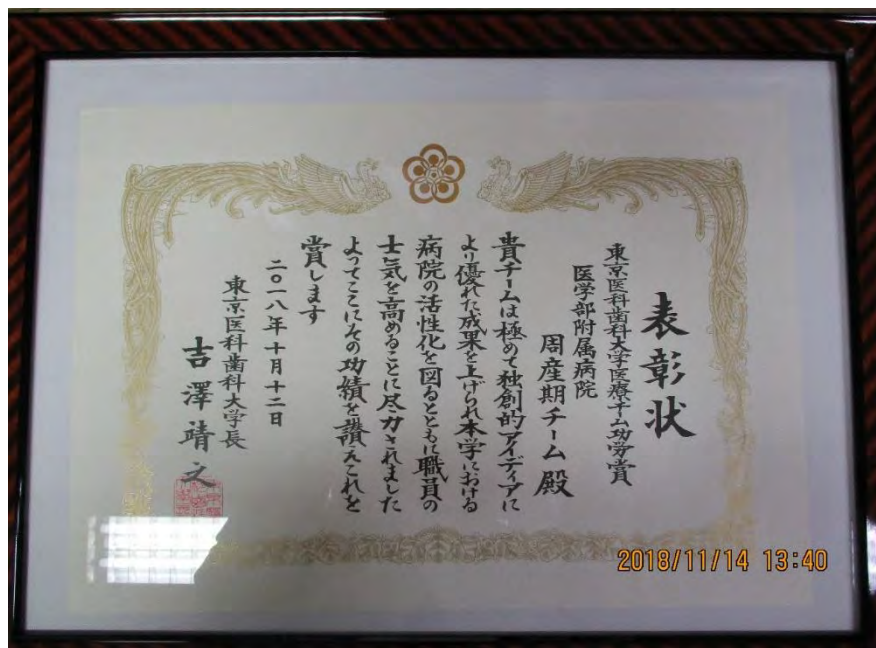 表彰状
東京医科歯科大学医療チーム功労賞
医学部附属病院
周産期チーム殿
貴チームは極めて独創的アイディアに
より優れた成果を上げられ本学における
病院の活性化を図るとともに職員の
士気を高めることに尽力されました
よってここにその功績を讃えこれを
賞します
二〇一八年十月十二日
東京医科歯科大学長
吉澤靖之
2018/11/14 13:40